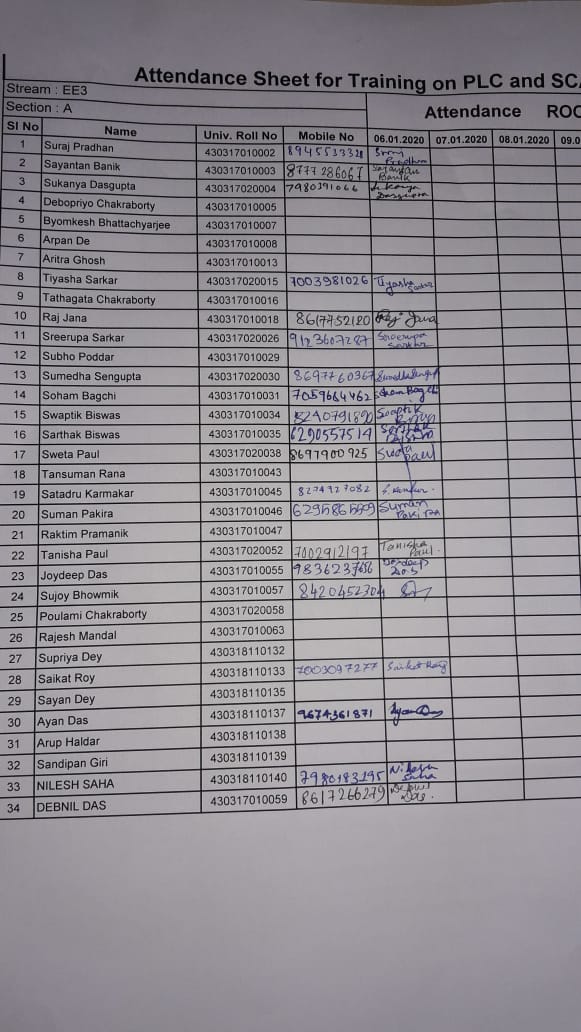 Attendance Sheet for Training on PLC and SCA
Stream : EE3
Section : A
Attendance ROO
Sl No Name Univ. Roll No Mobile No 06.01.2020 07.01.2020 08.01.2020 09.0
1 Suraj Pradhan 430317010002 8945533328 Suraj Pradhan
2 Sayantan Banik 430317010003 8777286067 Sayantan Banik
3 Sukanya Dasgupta 430317020004 7980391066 Sukanya Dasgupta
4 Debopriyo Chakraborty 430317010005
5 Byomkesh Bhattachyarjee 430317010007
6 Arpan De 430317010008
7 Aritra Ghosh 430317010013
8 Tiyasha Sarkar 430317020015 7003981026 Tiyasha Sarkar
9 Tathagata Chakraborty 430317010016
10 Raj Jana 430317010018 8617752120 Raj Jana
11 Sreerupa Sarkar 430317020026 9123607287 Sreerupa Sarkar
12 Subho Poddar 430317010029
13 Sumedha Sengupta 430317020030 8697760367 Sumedha Sengupta
14 Soham Bagchi 430317010031 7059664462 Soham Bagchi
15 Swaptik Biswas 430317010034 Swaptik Biswas
16 Sarthak Biswas 430317010035 6290557514 Sarthak Biswas
17 Sweta Paul 430317020038 8697900925 Sweta Paul
18 Tansuman Rana 430317010043
19 Satadru Karmakar 430317010045 8274927082
20 Suman Pakira 430317010046 Suman Pakira
21 Raktim Pramanik 430317010047
22 Tanisha Paul 430317020052 7002912197 Tanisha Paul.
23 Joydeep Das 430317010055 Joydeep Das
24 Sujoy Bhowmik 430317010057 8420452304
25 Poulami Chakraborty 430317020058
26 Rajesh Mandal 430317010063
27 Supriya Dey 430318110132
28 Saikat Roy 430318110133 7003097277 Saikat Roy
29 Sayan Dey 430318110135
30 Ayan Das 430318110137 9674361871 Ayan Das
31 Arup Haldar 430318110138
32 Sandipan Giri 430318110139
33 NILESH SAHA 430318110140 7980183195 Nilesh Saha
34 DEBNIL DAS 430317010059 8617266279 Debnil Das.